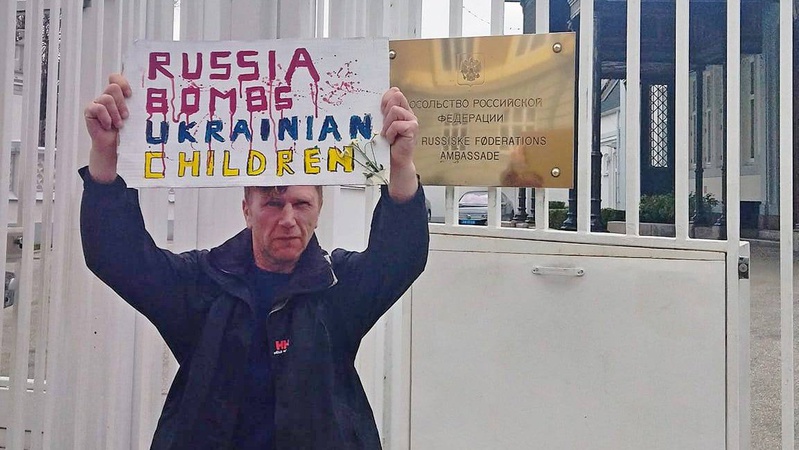 RUSSIA
BOMBS
UKRAINIAN
CHILDREN
ОСОЛЬСТВО РОССИЙСКОЙ
ФЕДЕРАЦИИ
RUSSISKE FØDERATIONS
AMBASSADE
HH